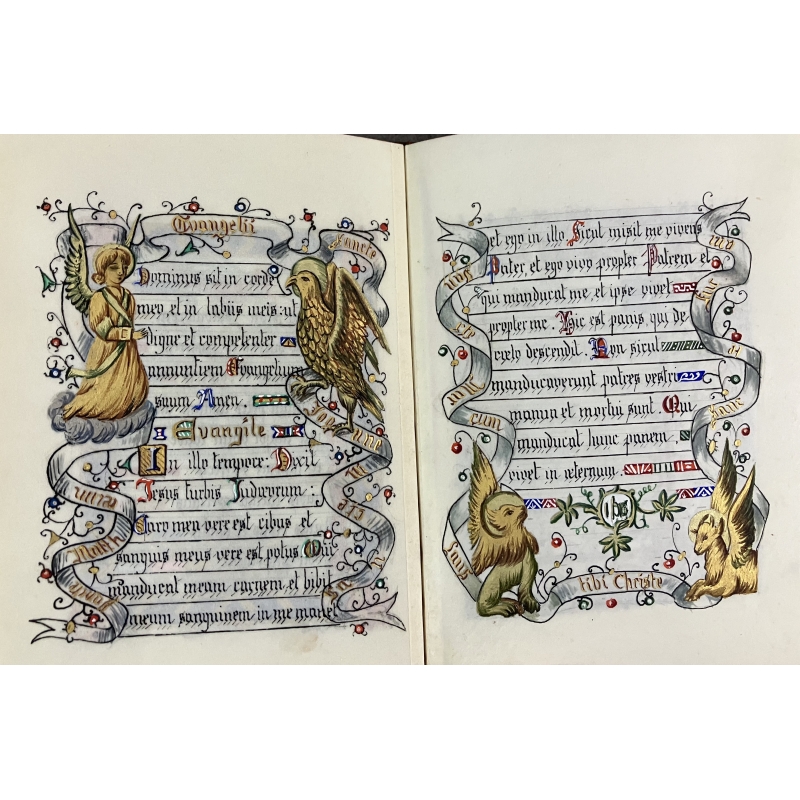 Evangelii
Sancte
Dominus sit in corde
meo, et in labiis meis: ut
digne et competenter
annuntiem Evangelium
suum Amen.
Evangile
In illo tempore: Dixit
Jesus turbis Judæorum:
Caro mea vere est cibus et
sanguis meus vere est potus. Qui
manducat meam carnem, et bibit
meum sanguinem in me manet
et ego in illo Sicut misit me vivens
Pater, et ego vivo propter Patrem et
qui manducat me, et ipse vivet
propter me. Hic est panis, qui de
cœlo descendit. Non sicut
manducaverunt patres vestri
manna et mortui sunt. Qui
manducat hunc panem
vivet in æternum.
ihs
Laus
tibi Christe